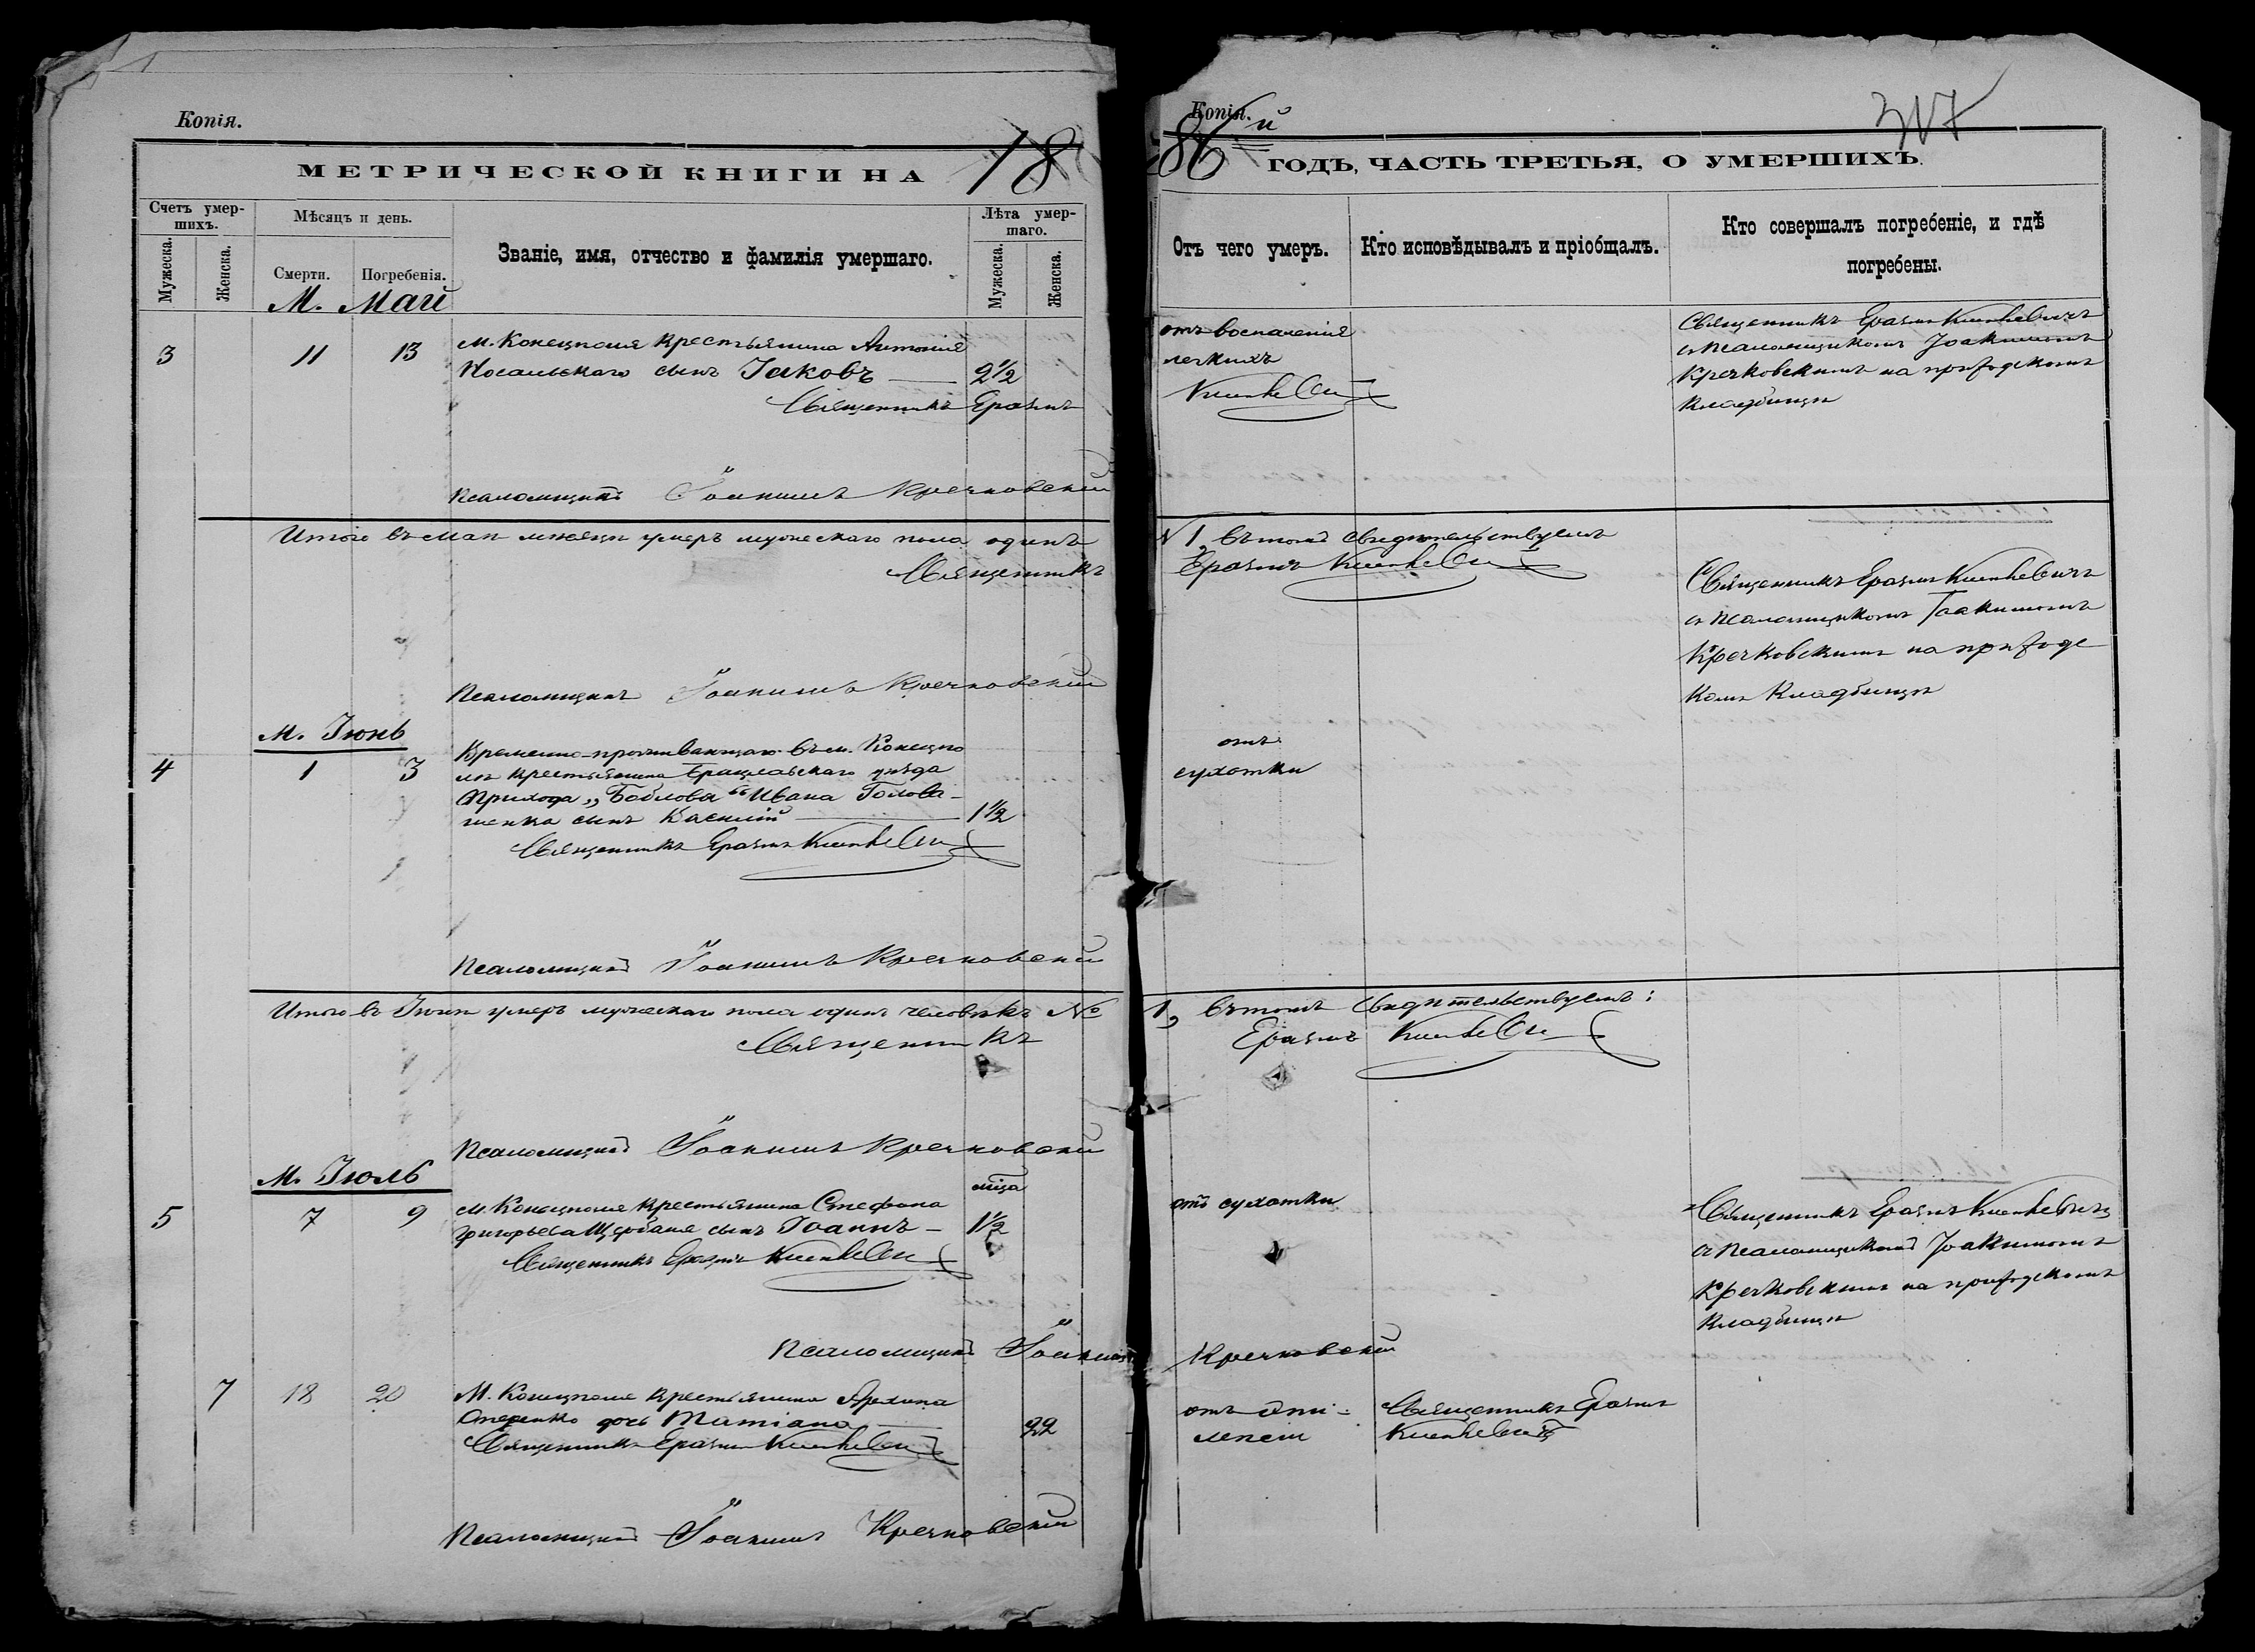 Копія.
МЕТРИЧЕСКОЙ КНИГИ НА 18
Счетъ умер-
шихъ.
Мѣсяцъ и день.
Званіе, имя, отчество и фамилія умершаго.
Лѣта умер-
шаго.
Мужеска.
Женска.
Смерти.
Погребенія.
Мужеска.
Женска.
М. Май
3 11 13 м. Конецполя крестьянина Антонія
сынъ Іаковъ 2½
Священникъ Еразмъ
Псаломщикъ Іоакимъ Кречковскій
Итого въ маѣ мѣсяцѣ умеръ мужескаго пола одинъ
Священникъ
Псаломщикъ Іоакимъ Кречковскій
М. Іюнь
Временно-проживающаго въ м. Конецпо
4 1 3 лѣ крестьянина Брацлавскаго уѣзда
прихода „ “ Ивана Голова-
щенка сынъ Василій 1½
Священникъ Еразмъ
Псаломщикъ Іоакимъ Кречковскій
Итого въ Іюнѣ умеръ мужескаго пола одинъ человѣкъ №
Священникъ
Псаломщикъ Іоакимъ Кречковскій
М. Іюль
мѣца
5 7 9 м. Конецполя крестьянина Стефана
Григорьева Щербаня сынъ Іоаннъ 1½
Священникъ Еразмъ
Псаломщикъ Іоакимъ
7 18 20 М. Конецполя крестьянина Архипа
дочь Татіана 22
Священникъ Еразмъ
Псаломщикъ Іоакимъ Кречковскій
Копія.
86й ГОДЪ, ЧАСТЬ ТРЕТЬЯ, О УМЕРШИХЪ.
Отъ чего умеръ.
Кто исповѣдывалъ и пріобщалъ.
Кто совершалъ погребеніе, и гдѣ
погребены.
отъ воспаленія
легкихъ
Священникъ Еразмъ
съ псаломщикомъ Іоакимомъ
Кречковскимъ на приходскомъ
кладбищѣ
№ 1, въ томъ свидѣтельствуемъ
Еразмъ
Священникъ Еразмъ
съ псаломщикомъ Іоакимомъ
Кречковскимъ на приходс
комъ кладбищѣ
отъ
сухотки
1, въ томъ свидѣтельствуемъ:
Еразмъ
отъ сухотки
Священникъ Еразмъ
съ псаломщикомъ Іоакимомъ
Кречковскимъ на приходскомъ
кладбищѣ
Кречковскій
отъ эпи-
лепсіи
Священникъ Еразмъ